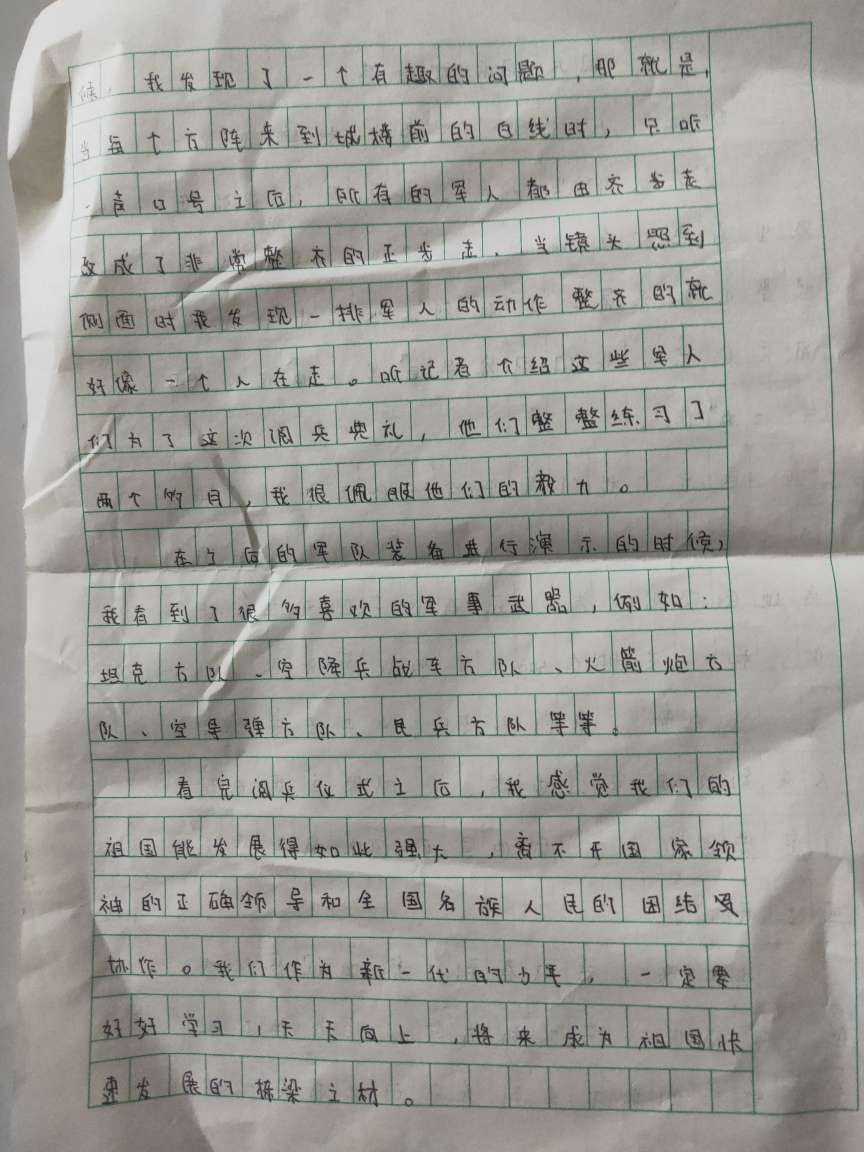 候，我发现了一个有趣的问题，那就是，
当每个方阵来到城楼前的白线时，只听
一声口号之后，所有的军人都由齐步走
改成了非常整齐的正步走，当镜头照到
侧面时我发现一排军人的动作整齐的就
好像一个人在走。听记者介绍这些军人
们为了这次阅兵典礼，他们整整练习了
两个多月，我很佩服他们的毅力。
在之后的军队装备进行演示的时候，
我看到了很多喜欢的军事武器，例如：
坦克方队、空降兵战车方队、火箭炮方
队、空导弹方队、民兵方队等等。
看完阅兵仪式之后，我感觉我们的
祖国能发展得如此强大，离不开国家领
袖的正确领导和全国各族人民的团结
协作。我们作为新一代的少年，一定要
好好学习，天天向上，将来成为祖国快
速发展的栋梁之材。